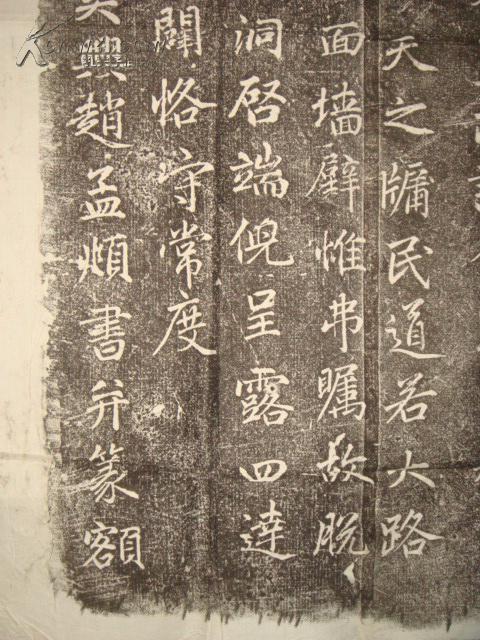 天之牖民道若大路
面墙廦惟弗矚故脱
洞启端倪呈露四達
恪守常度
興趙孟頫書并篆額